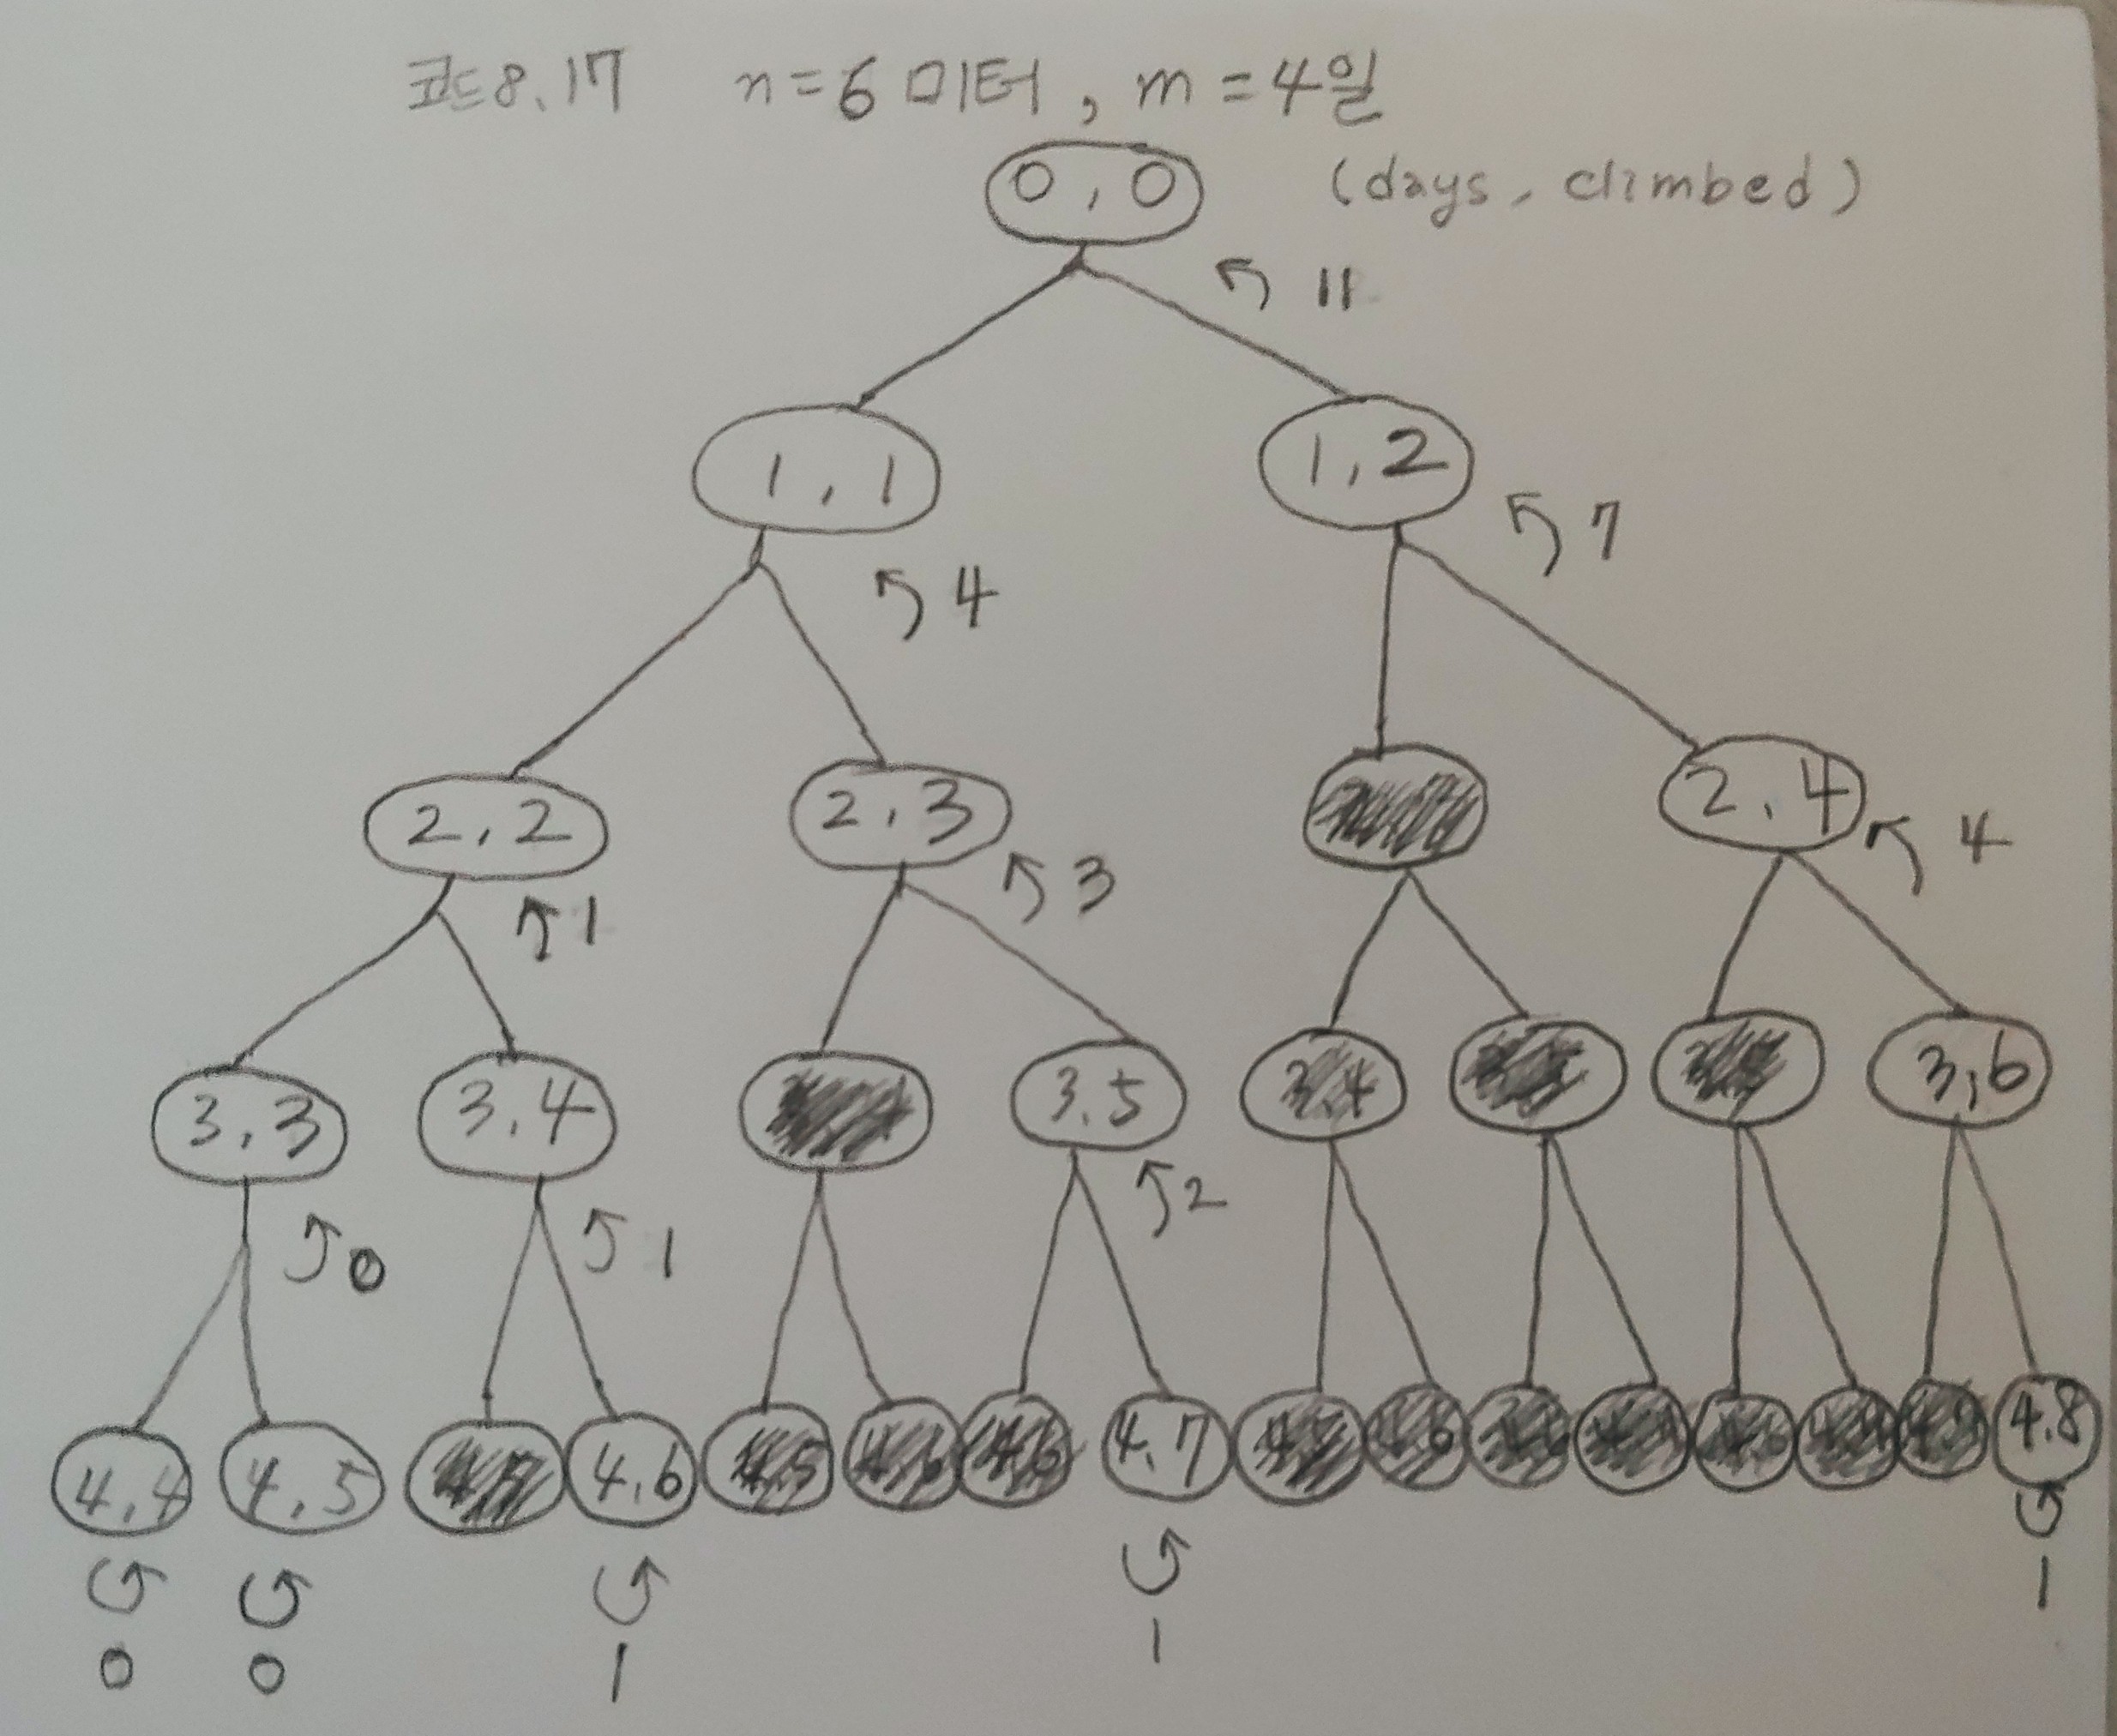 코드8.17 n=6미터, m=4일
0,0 (days, climbed)
11
1,1 1,2
7
4
2,2 2,3 2,4
4
3
1
3,3 3,4 3,5 3,4 3,6
2
0 1
4,4 4,5 4,6 4,5 4,6 4,6 4,7 4,8
0 0 1 1 1